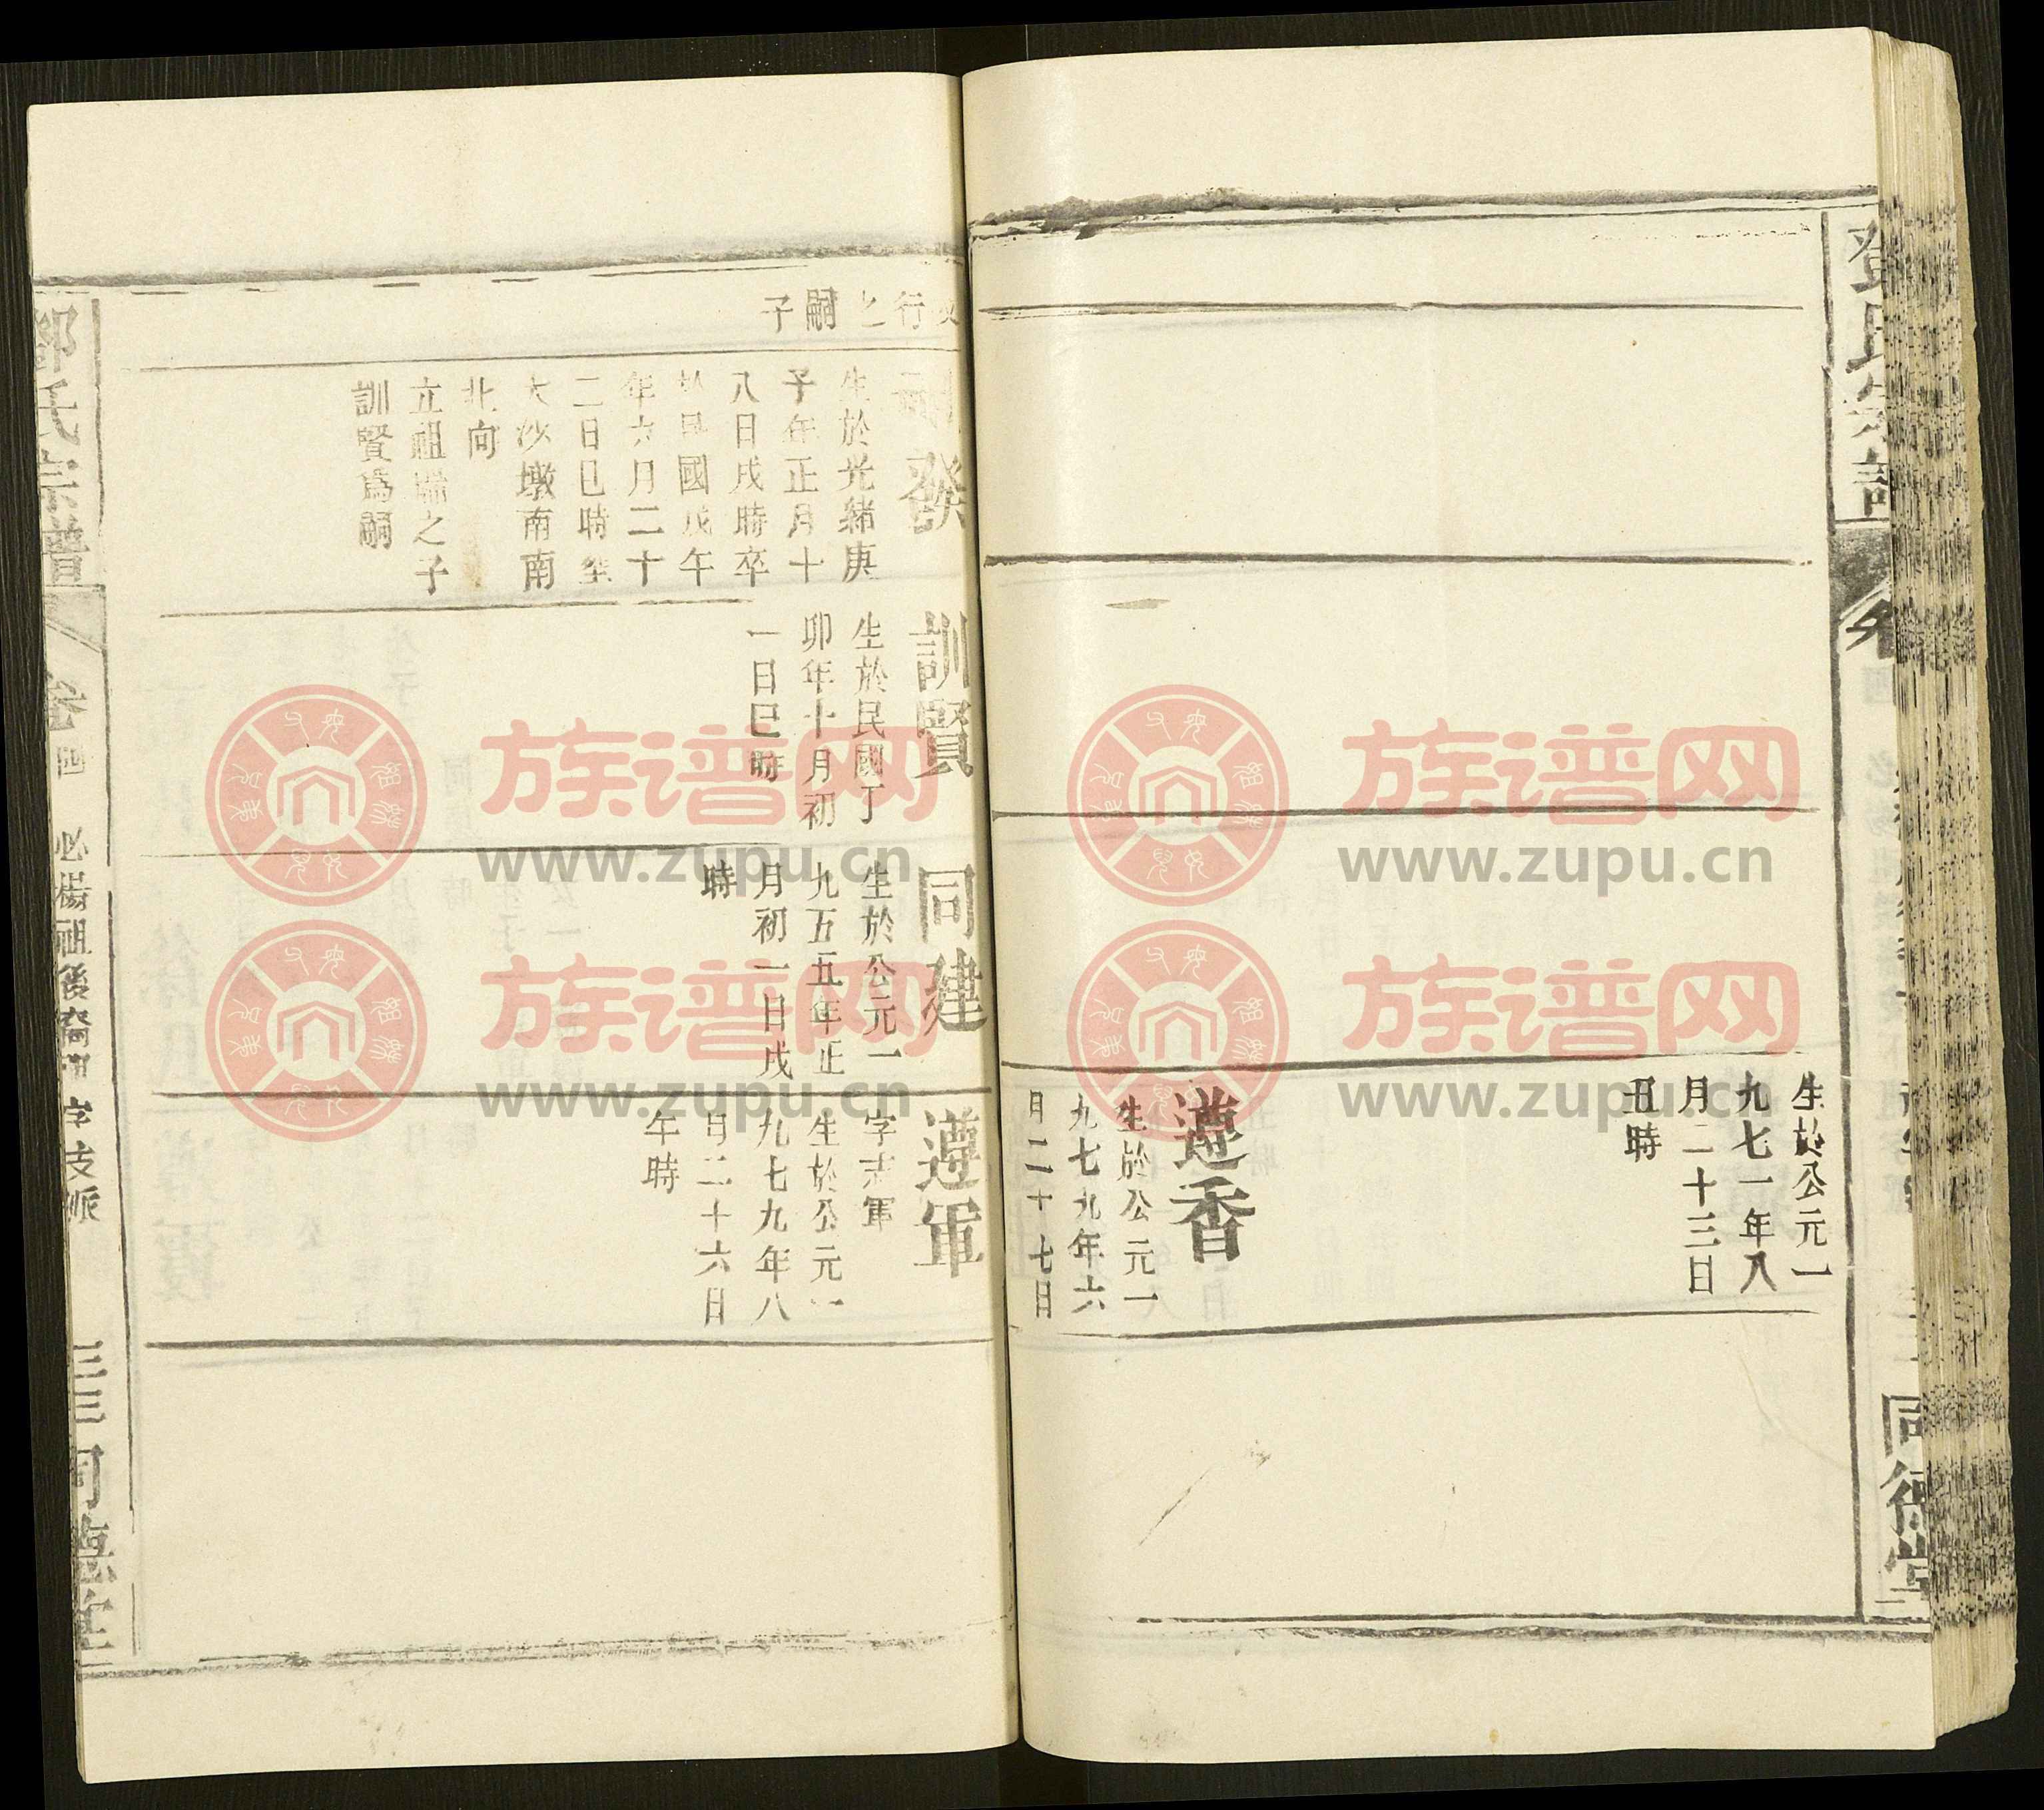 生於公元一
九七一年八
月二十三日
丑時
遵香
生於公元一
九七九年六
月二十七日
行之嗣子
發
生於光緒庚
子年正月十
八日戌時卒
於民國戊午
年六月二十
二日巳時塟
大沙墩南南
北向
立祖瑞之子
訓賢爲嗣
訓賢
生於民國丁
卯年十月初
一日巳時
同建
生於公元一
九五五年正
月初一日戌
時
遵軍
字志軍
生於公元一
九七九年八
月二十六日
午時
鄧氏宗譜
卷四
必楊祖後裔
字支派
三三
同德堂
鄧氏宗譜
卷
同德堂
族谱网
www.zupu.cn
族谱网
www.zupu.cn
族谱网
www.zupu.cn
族谱网
www.zupu.cn